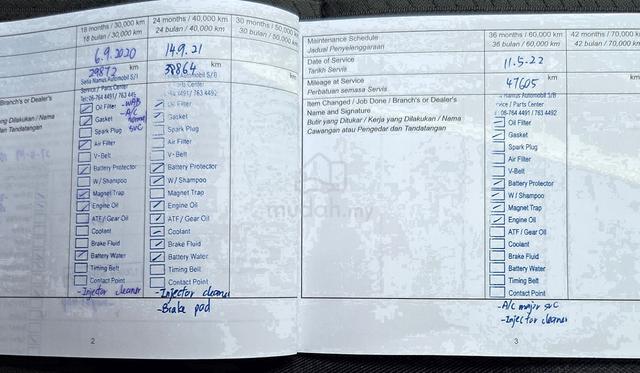 18 months / 30,000 km
18 bulan / 30,000 km
24 months / 40,000 km
24 bulan / 40,000 km
30 months / 50,000 km
30 bulan / 50,000 km
6.9.2020
14.9.21
29872 km
38864 km
Setia Namus Automobil S/B
Service / Parts Center
Tel: 06-764 4491 / 763 445
Branch's or Dealer's
Nama
dan Tandatangan
Oil Filter
Gasket
Spark Plug
Air Filter
V-Belt
Battery Protector
W / Shampoo
Magnet Trap
Engine Oil
ATF / Gear Oil
Coolant
Brake Fluid
Battery Water
Timing Belt
Contact Point
- A/C
svc
- Injector cleaner
Oil Filter
Gasket
Spark Plug
Air Filter
V-Belt
Battery Protector
W / Shampoo
Magnet Trap
Engine Oil
ATF / Gear Oil
Coolant
Brake Fluid
Battery Water
Timing Belt
Contact Point
- Injector cleaner
- Brake pad
2
Maintenance Schedule
Jadual Penyelenggaraan
36 months / 60,000 km
36 bulan / 60,000 km
42 months / 70,000
42 bulan / 70,000
Date of Service
Tarikh Servis
11.5.22
Mileage at Service
Perbatuan semasa Servis
47605 km
Item Changed / Job Done / Branch's or Dealer's
Name and Signature
Butir yang Ditukar / Kerja yang Dilakukan / Nama
Cawangan atau Pengedar dan Tandatangan
Namus Automobil S/B
rvice / Parts Center
06-764 4491 / 763 4492
Oil Filter
Gasket
Spark Plug
Air Filter
V-Belt
Battery Protector
W / Shampoo
Magnet Trap
Engine Oil
ATF / Gear Oil
Coolant
Brake Fluid
Battery Water
Timing Belt
Contact Point
- A/C major svc
- Injector cleaner
3
mudah.my